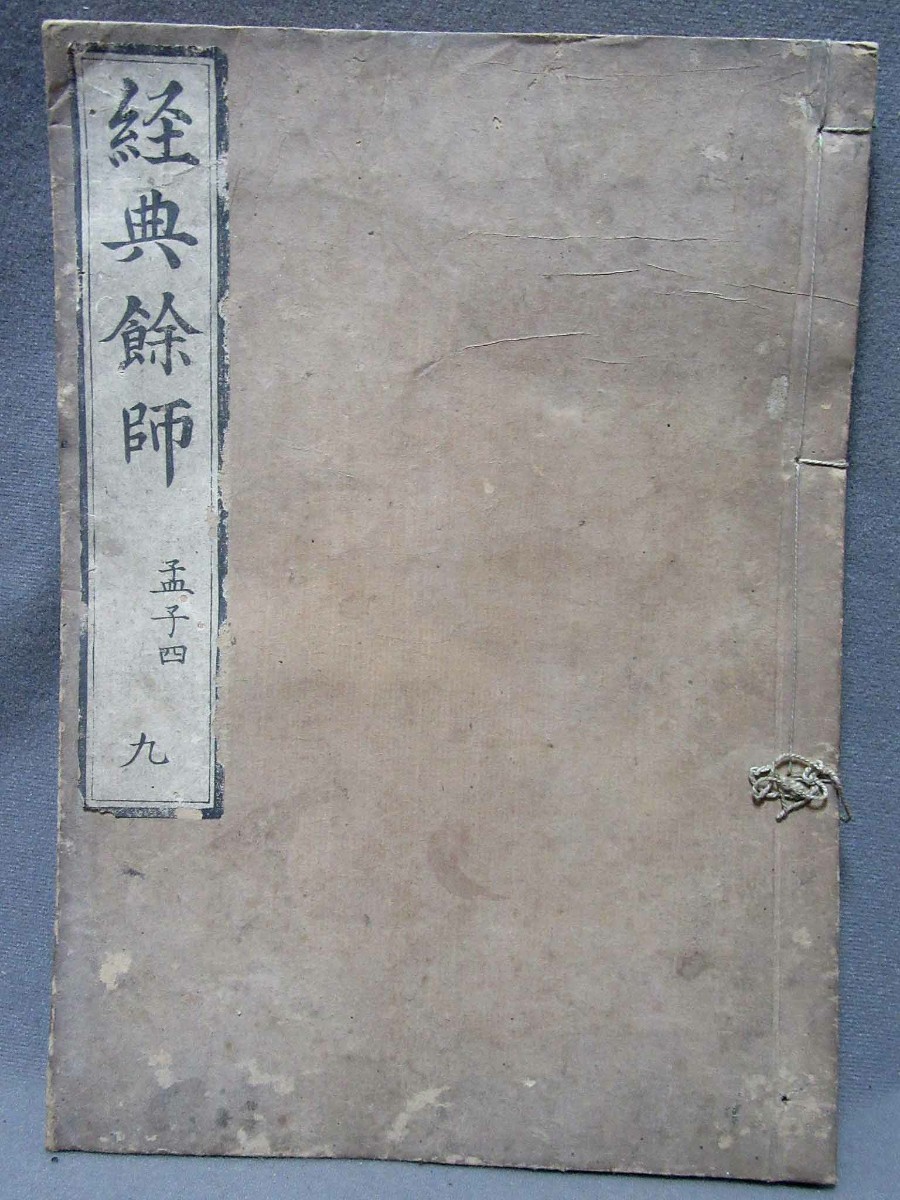 経典餘師
孟子四
九